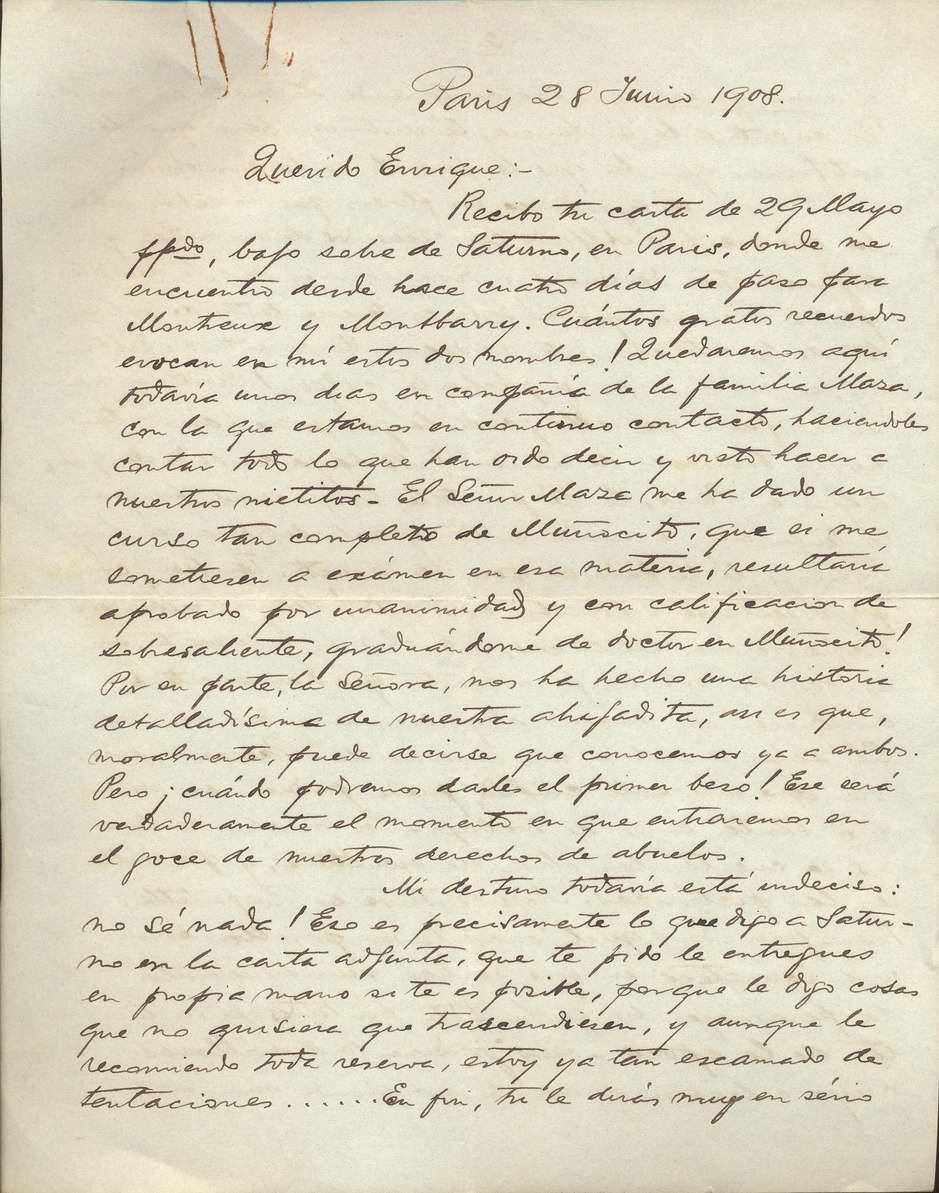 Paris 28 Junio 1908.
Querido Enrique:-
Recibo tu carta de 29 Mayo
ppdo, bajo sobre de Saturno, en Paris, donde me
encuentro desde hace cuatro días de paso para
Montreux y Montbarry. Cuántos gratos recuerdos
evocan en mi estos dos nombres! Quedaremos aquí
todavía unos dias en compañia de la familia Maza,
con la que estamos en continuo contacto, haciendoles
contar todo lo que han oido decir y visto hacer a
nuestros nietitos- El Señor Maza me ha dado un
curso tan completo de Muñocito, que si me
sometiesen a exámen en esa materia, resultaría
aprobado por unanimidad y con calificacion de
sobresaliente, graduándome de doctor en Muñocito!
Por su parte, la Señora, nos ha hecho una historia
detalladísima de nuestra ahijadita, asi es que,
moralmente, puede decirse que conocemos ya a ambos.
Pero ¡cuándo podremos darles el primer beso! Ese será
verdaderamente el momento en que entraremos en
el goce de nuestros derechos de abuelos.
Mi destino todavía está indeciso:
no sé nada! Eso es precisamente lo que digo a Satur-
no en la carta adjunta, que te pido le entregues
en propia mano si te es posible, porque le digo cosas
que no quisiera que trascendiesen, y aunque le
recomiendo toda reserva, estoy ya tan escamado de
tentaciones ...... En fin, tu le dirás muy en sério